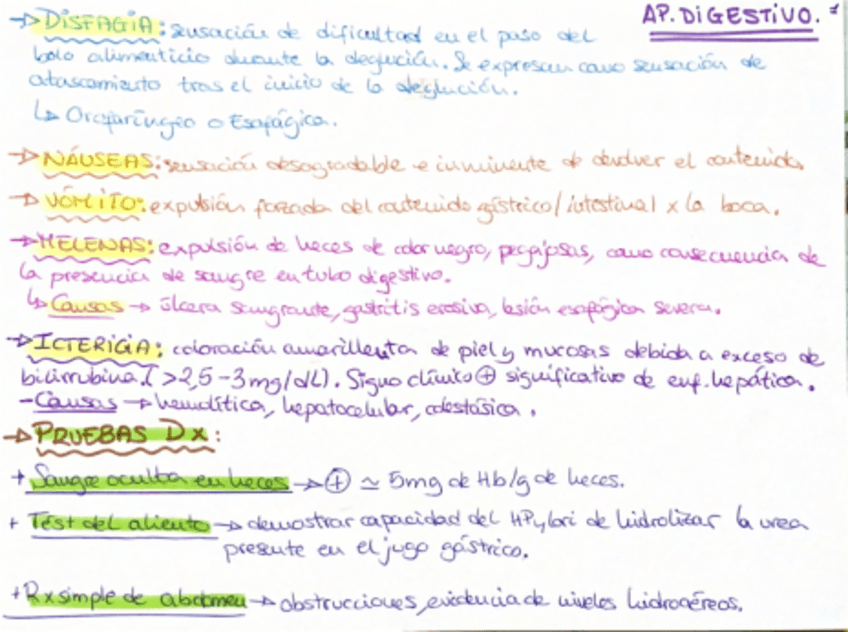 AP. DIGESTIVO.
→ DISFAGIA: sensación de dificultad en el paso del
bolo alimenticio durante la deglución. Se expresan como sensación de
atascamiento tras el inicio de la deglución.
↳ Orofaríngeo o Esofágica.
→ NÁUSEAS: sensación desagradable e inminente de devolver el contenido.
→ VÓMITO: expulsión forzada del contenido gástrico/intestinal x la boca.
→ MELENAS: expulsión de heces de color negro, pegajosas, como consecuencia de
la presencia de sangre en tubo digestivo.
↳ Causas → úlcera sangrante, gastritis erosiva, lesión esofágica severa.
→ ICTERICIA: coloración amarillenta de piel y mucosas debida a exceso de
bilirrubina (>2,5-3mg/dL). Signo clínico ⊕ significativo de enf. hepática.
- Causas → hemolítica, hepatocelular, colestásica.
→ PRUEBAS Dx:
+ Sangre oculta en heces → ⊕ ≃ 5mg de Hb/g de heces.
+ Test del aliento → demostrar capacidad del HPylori de hidrolizar la urea
presente en el jugo gástrico.
+ Rx simple de abdomen → obstrucciones, evidencia de niveles hidroaéreos.